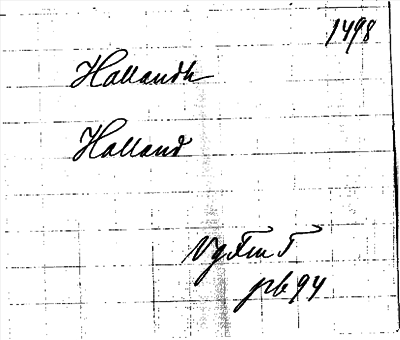 1498
Hallandh
Halland
VgFmT
pb 94